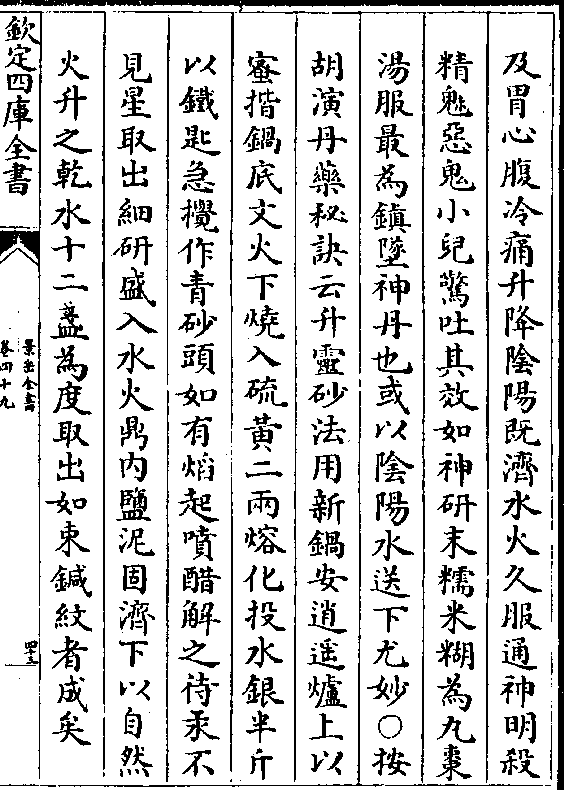 及胃心腹冷痛升降陰陽既濟水火久服通神明殺
精魅惡鬼小兒驚吐其效如神研末糯米糊為丸棗
湯服最為鎮墜神丹也或以陰陽水送下尤妙○按
胡演丹藥秘訣云升靈砂法用新鍋安逍遙爐上以
蜜揩鍋底文火下燒入硫黃二兩熔化投水銀半斤
以鐵匙急攪作青砂頭如有焰起噴醋解之待汞不
見星取出細研盛入水火鼎内鹽泥固濟下以自然
火升之乾水十二盞為度取出如束鍼紋者成矣
欽定四庫全書
景岳全書
卷四十九
四十三